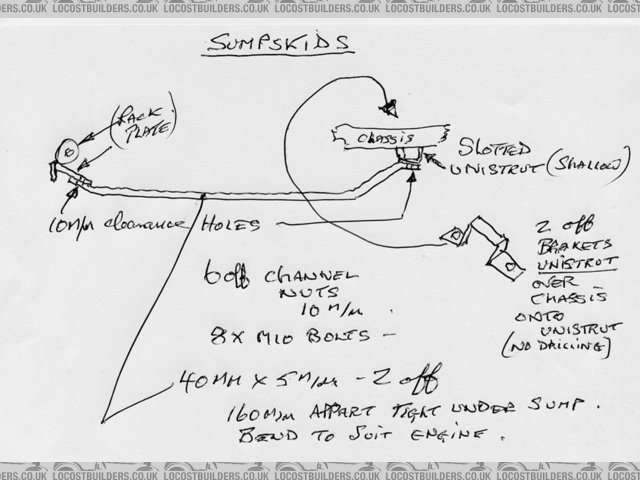 LOCOSTBUILDERS.CO.UK LOCOSTBUILDERS.CO.UK LOCOSTBUILDERS.CO.UK LOCOSTBUILDERS.CO.UK
SUMPSKIDS
(RACK
PLATE)
CHASSIS
SLOTTED
UNISTRUT (SHALLOW)
10M/M clearance HOLES
2 off
BRAKETS
UNISTRUT
OVER
CHASSIS
ONTO
UNISTRUT
(NO DRILLING)
6 off CHANNEL
NUTS
10 M/M.
8 X M10 BOLTS -
40MM X 5M/M - 2 off
160M/M APPART TIGHT UNDER SUMP.
BEND TO SUIT ENGINE.
LOCOSTBUILDERS.CO.UK LOCOSTBUILDERS.CO.UK LOCOSTBUILDERS.CO.UK LOCOSTBUILDERS.CO.UK